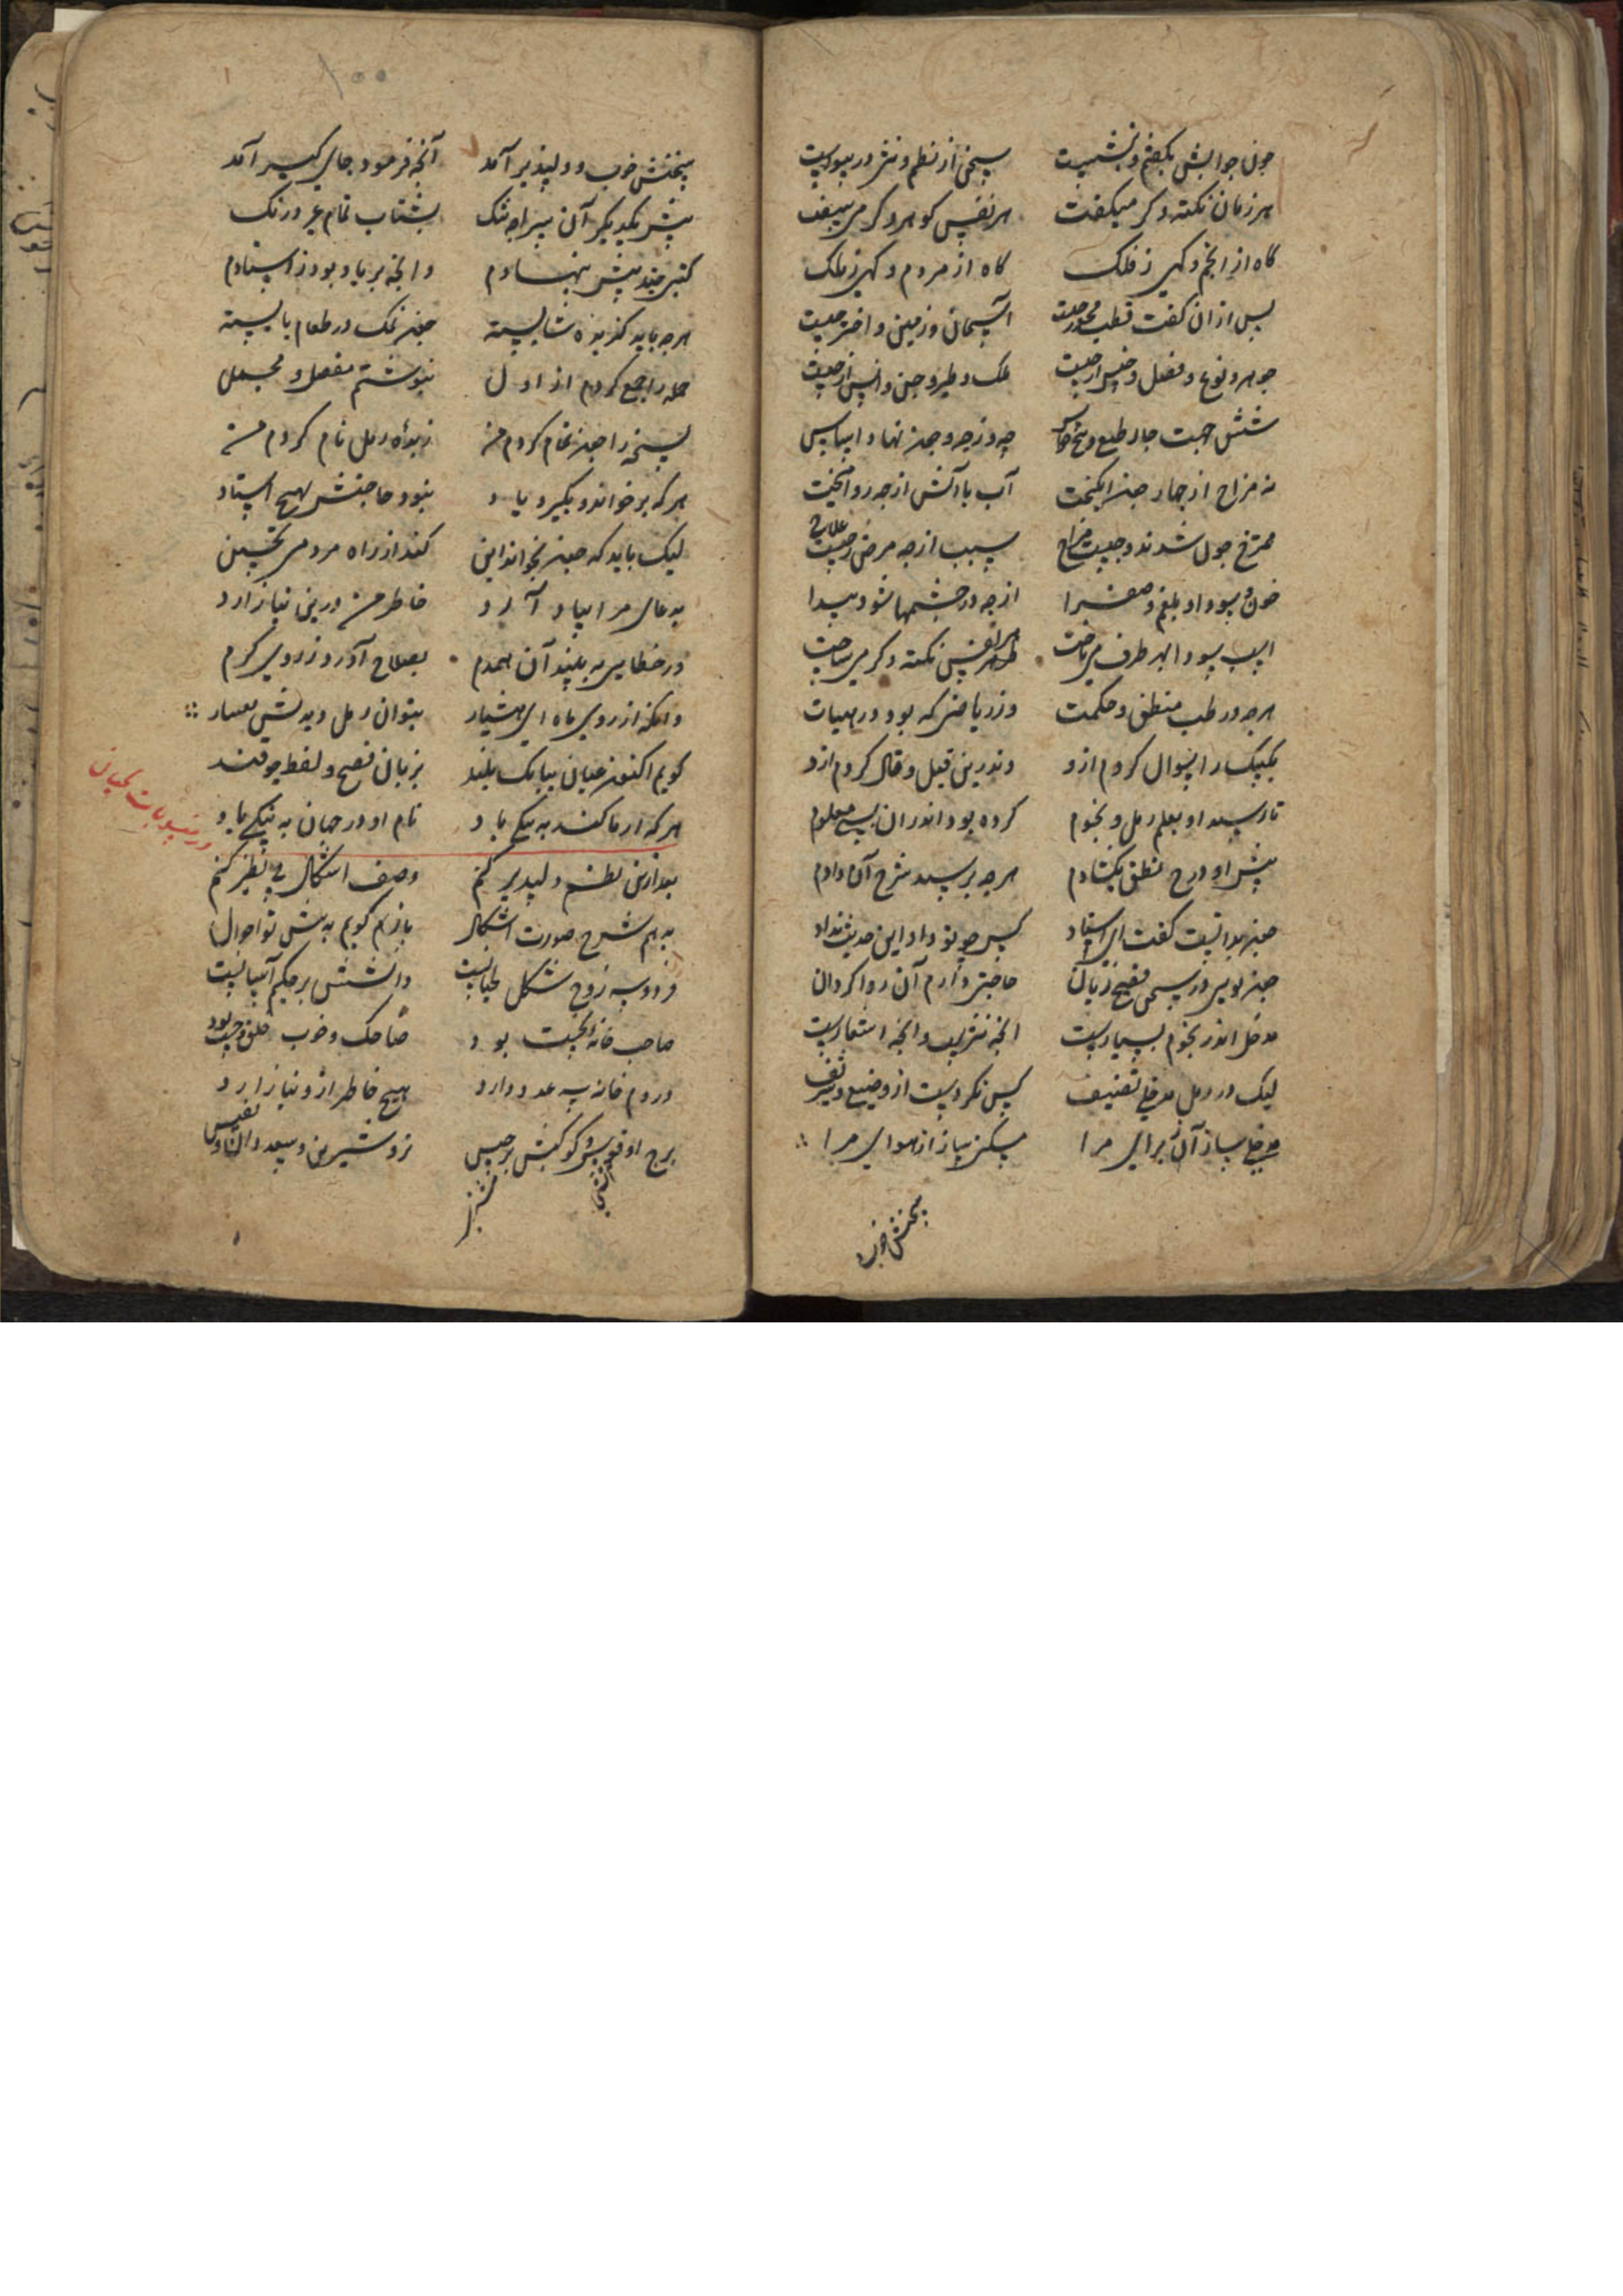 چون جوابش بگفتم و بنشست سخن از نظم و نثر در پیوست
هر زمان نکته دگر میگفت هر نفس گوهر دگر می سفت
گاه از انجم و گهی ز فلک گاه از مردم و گهی ز ملک
پس ازان گفت قطب محور چیست آسمان و زمین و اختر چیست
جوهر و نوع و فصل و جنس از چیست ملک و طیر و جن و انس از چیست
شش جهت چار طبع و پنج حواس چه و از چه و چون نهاد اساس
نه مزاج از چهار چون انگیخت آب با آتش از چه رو آمیخت
ممتزج چون شدند و چیست مزاج سبب از چه مرض ز چیست علاج
خون و سودا و بلغم و صفرا از چه در جسمها شود پیدا
اسب سودا بهر طرف می تاخت هر نفس نکته دگر می ساخت
هرچه در طب و منطق و حکمت وز ریاضی که بود در هیات
یکیک را سوال کردم ازو وندرین قیل و قال کردم ازو
تا رسید او بعلم رمل و نجوم کرده بود اندران بسی معلوم
پیش او درج نطق بگشادم هرچه پرسید شرح آن دادم
چون بدانست گفت ای استاد کس چو تو داد این حدیث نداد
چون تویی در سخن فصیح زبان حاجتی دارم آن روا گردان
مدخل اندر نجوم بسیارست آنچه نثریست و آنچه اشعارست
لیک در رمل مدخلی تصنیف کس نکردست از وضیع و شریف
مدخلی ساز آن برای مرا مسکن ساز از هوای مرا
سخنش خوب
سخنش خوب و دلپذیر آمد آنچه فرمود جای گیر آمد
پیش یکدیگر آن سراچه تنگ بشتاب تمام بی درنگ
کتبی چند پیش بنهادم وانچه بر یاد بود ز استادم
هرچه باید گزیده شایسته چون نمک در طعام بایسته
جمله را جمع کردم از اول بنوشتم مفصل و مجمل
نسخه را چون تمام کردم من زبده رمل نام کردم من
هر که برخواند و بگیرد یاد نبود حاجتش بهیچ استاد
لیک باید که چون بخواند این کند از راه مردمی تحسین
بدعای مرا بیاد آرد خاطر من درین نیازارد
ور خطایی به بیند آن همدم بصلاح آورد ز روی کرم
وانکه از روی ماه ای هشیار بتوان رمل دیدنش بسیار
گویم اکنون عیان ببانگ بلند بزبان فصیح و لفظ چو قند
هر که از ما کند به نیکی یاد نام او در جهان به نیکی باد
در منسوبات لحیان
بعد ازین نظم دلپذیر کنم وصف اشکال بی نظیر کنم
بدهم شرح صورت اشکال بازهم گویم به پیش تو احوال
فرد و سه زوج شکل لحیانست دانستنش بر حکیم آسانست
صاحب خانه نخست بود ضاحک و خوب خلق و چست بود
در دوم خانه سه عدد دارد هیچ خاطر ازو نیازارد
برج او قوس و کوکبش برجیس نر و شیرین و سعد دان و نفیس